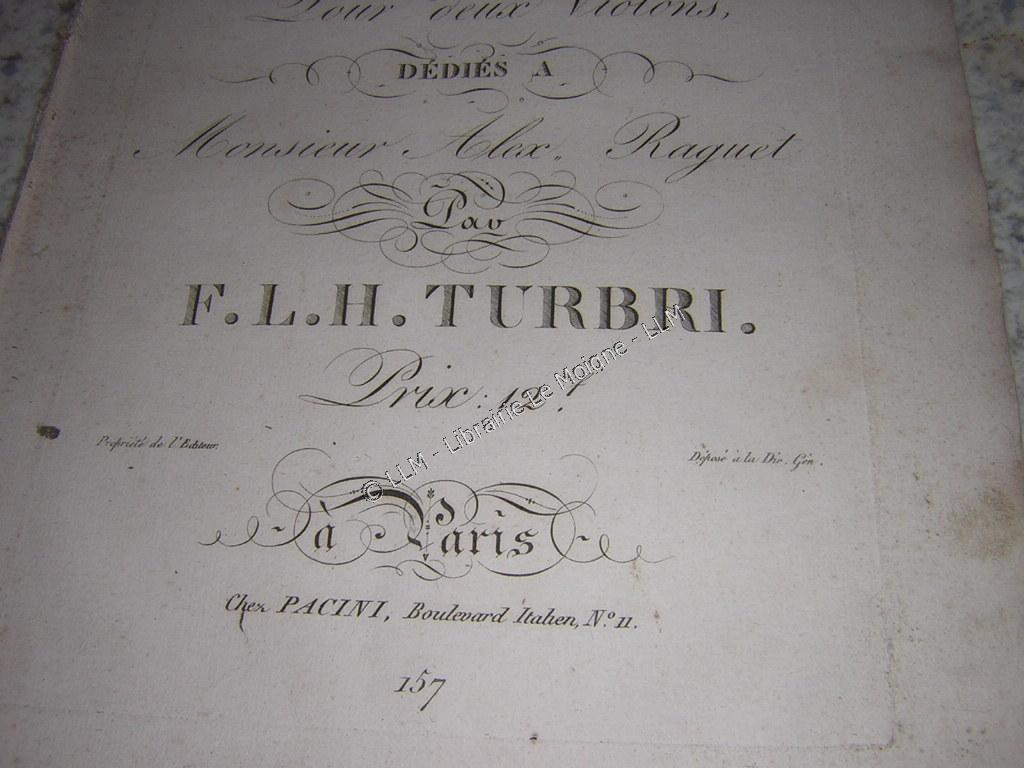 Pour deux Violons,
DÉDIÉS A
Monsieur Alex. Raguet
Par
F. L. H. TURBRI.
Prix: 12.f
Propriété de l'Editeur.
Déposé à la Dir. Gén.
à Paris
Chez PACINI, Boulevard Italien, N.o 11.
157
© LLM - Librairie Le Moigne - LLM